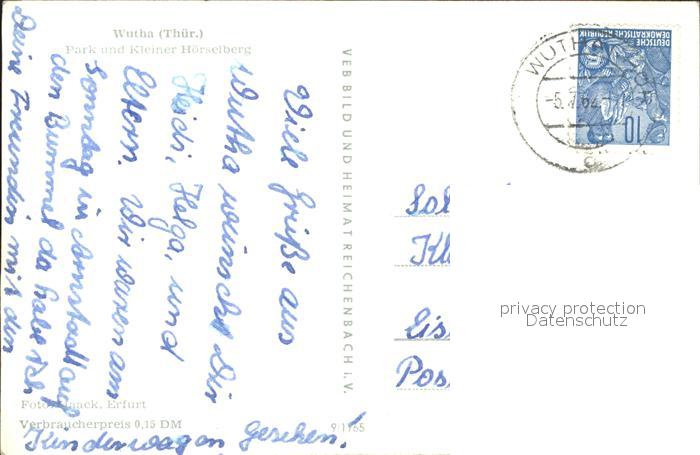 Wutha (Thür.)
Park und Kleiner Hörselberg
Viele Grüße aus
Wutha wünscht Dir
Heidi, Helga, und
Eltern. Wir waren am
Sonntag in Arnstadt auf
den Bummel da habe ich
Deine Freundin mit den
Kinderwagen gesehen!
Foto: Haack, Erfurt
Verbraucherpreis 0,15 DM
9/1165
VEB BILD UND HEIMAT REICHENBACH i. V.
WUTHA
-5.
DEUTSCHE
DEMOKRATISCHE REPUBLIK
10
Sol
Kl
Eis
Pos
privacy protection
Datenschutz